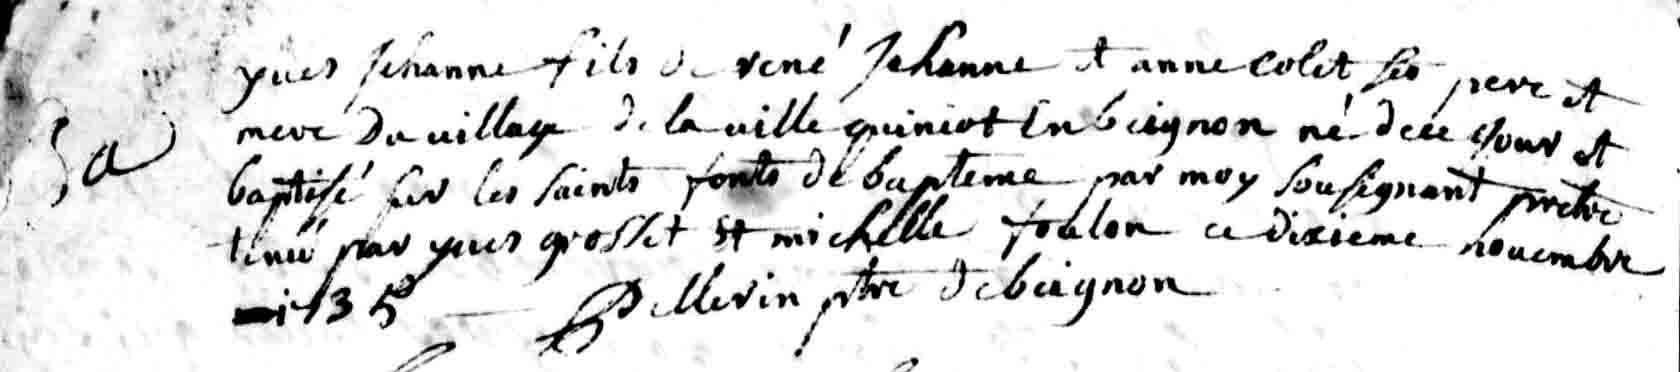 yues Jehanne fils de rené Jehanne et anne colet ses pere et
mere Du village de la uille quiniot En beignon né dece jour et
Ba
baptisé sur les saints fonts de bapteme par moy sousignant pretre
tenu par yues grosset et michelle foulon ce dixieme nouembre
1735 Pellerin ptre de beignon